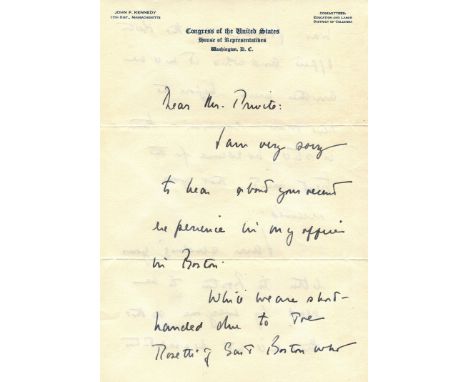 JOHN F. KENNEDY
11TH DIST., MASSACHUSETTS
COMMITTEES:
EDUCATION AND LABOR
DISTRICT OF COLUMBIA
Congress of the United States
House of Representatives
Washington, D. C.
Dear Mr. Privite:
I am very sorry
to hear about your recent
experience in my office
in Boston.
While we are short-
handed due to Joe
Rosetti of East Boston who